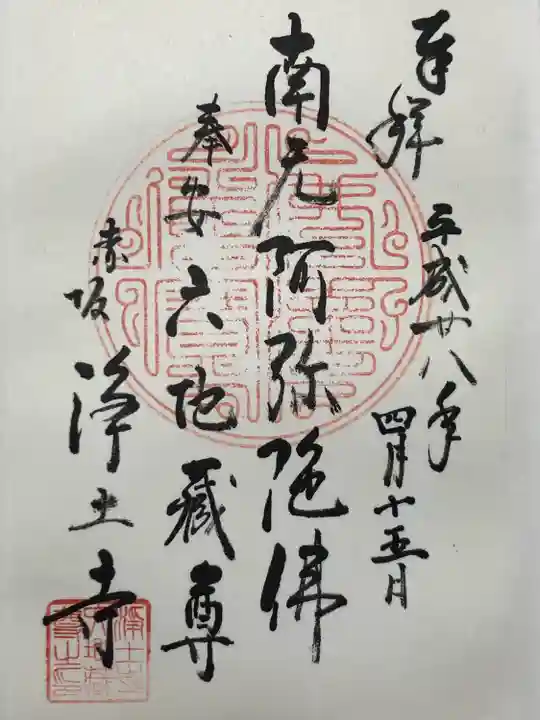 奉拝 平成廿八年 四月十五日
南无阿弥陀佛
奉安 六地蔵尊
赤坂 浄土寺